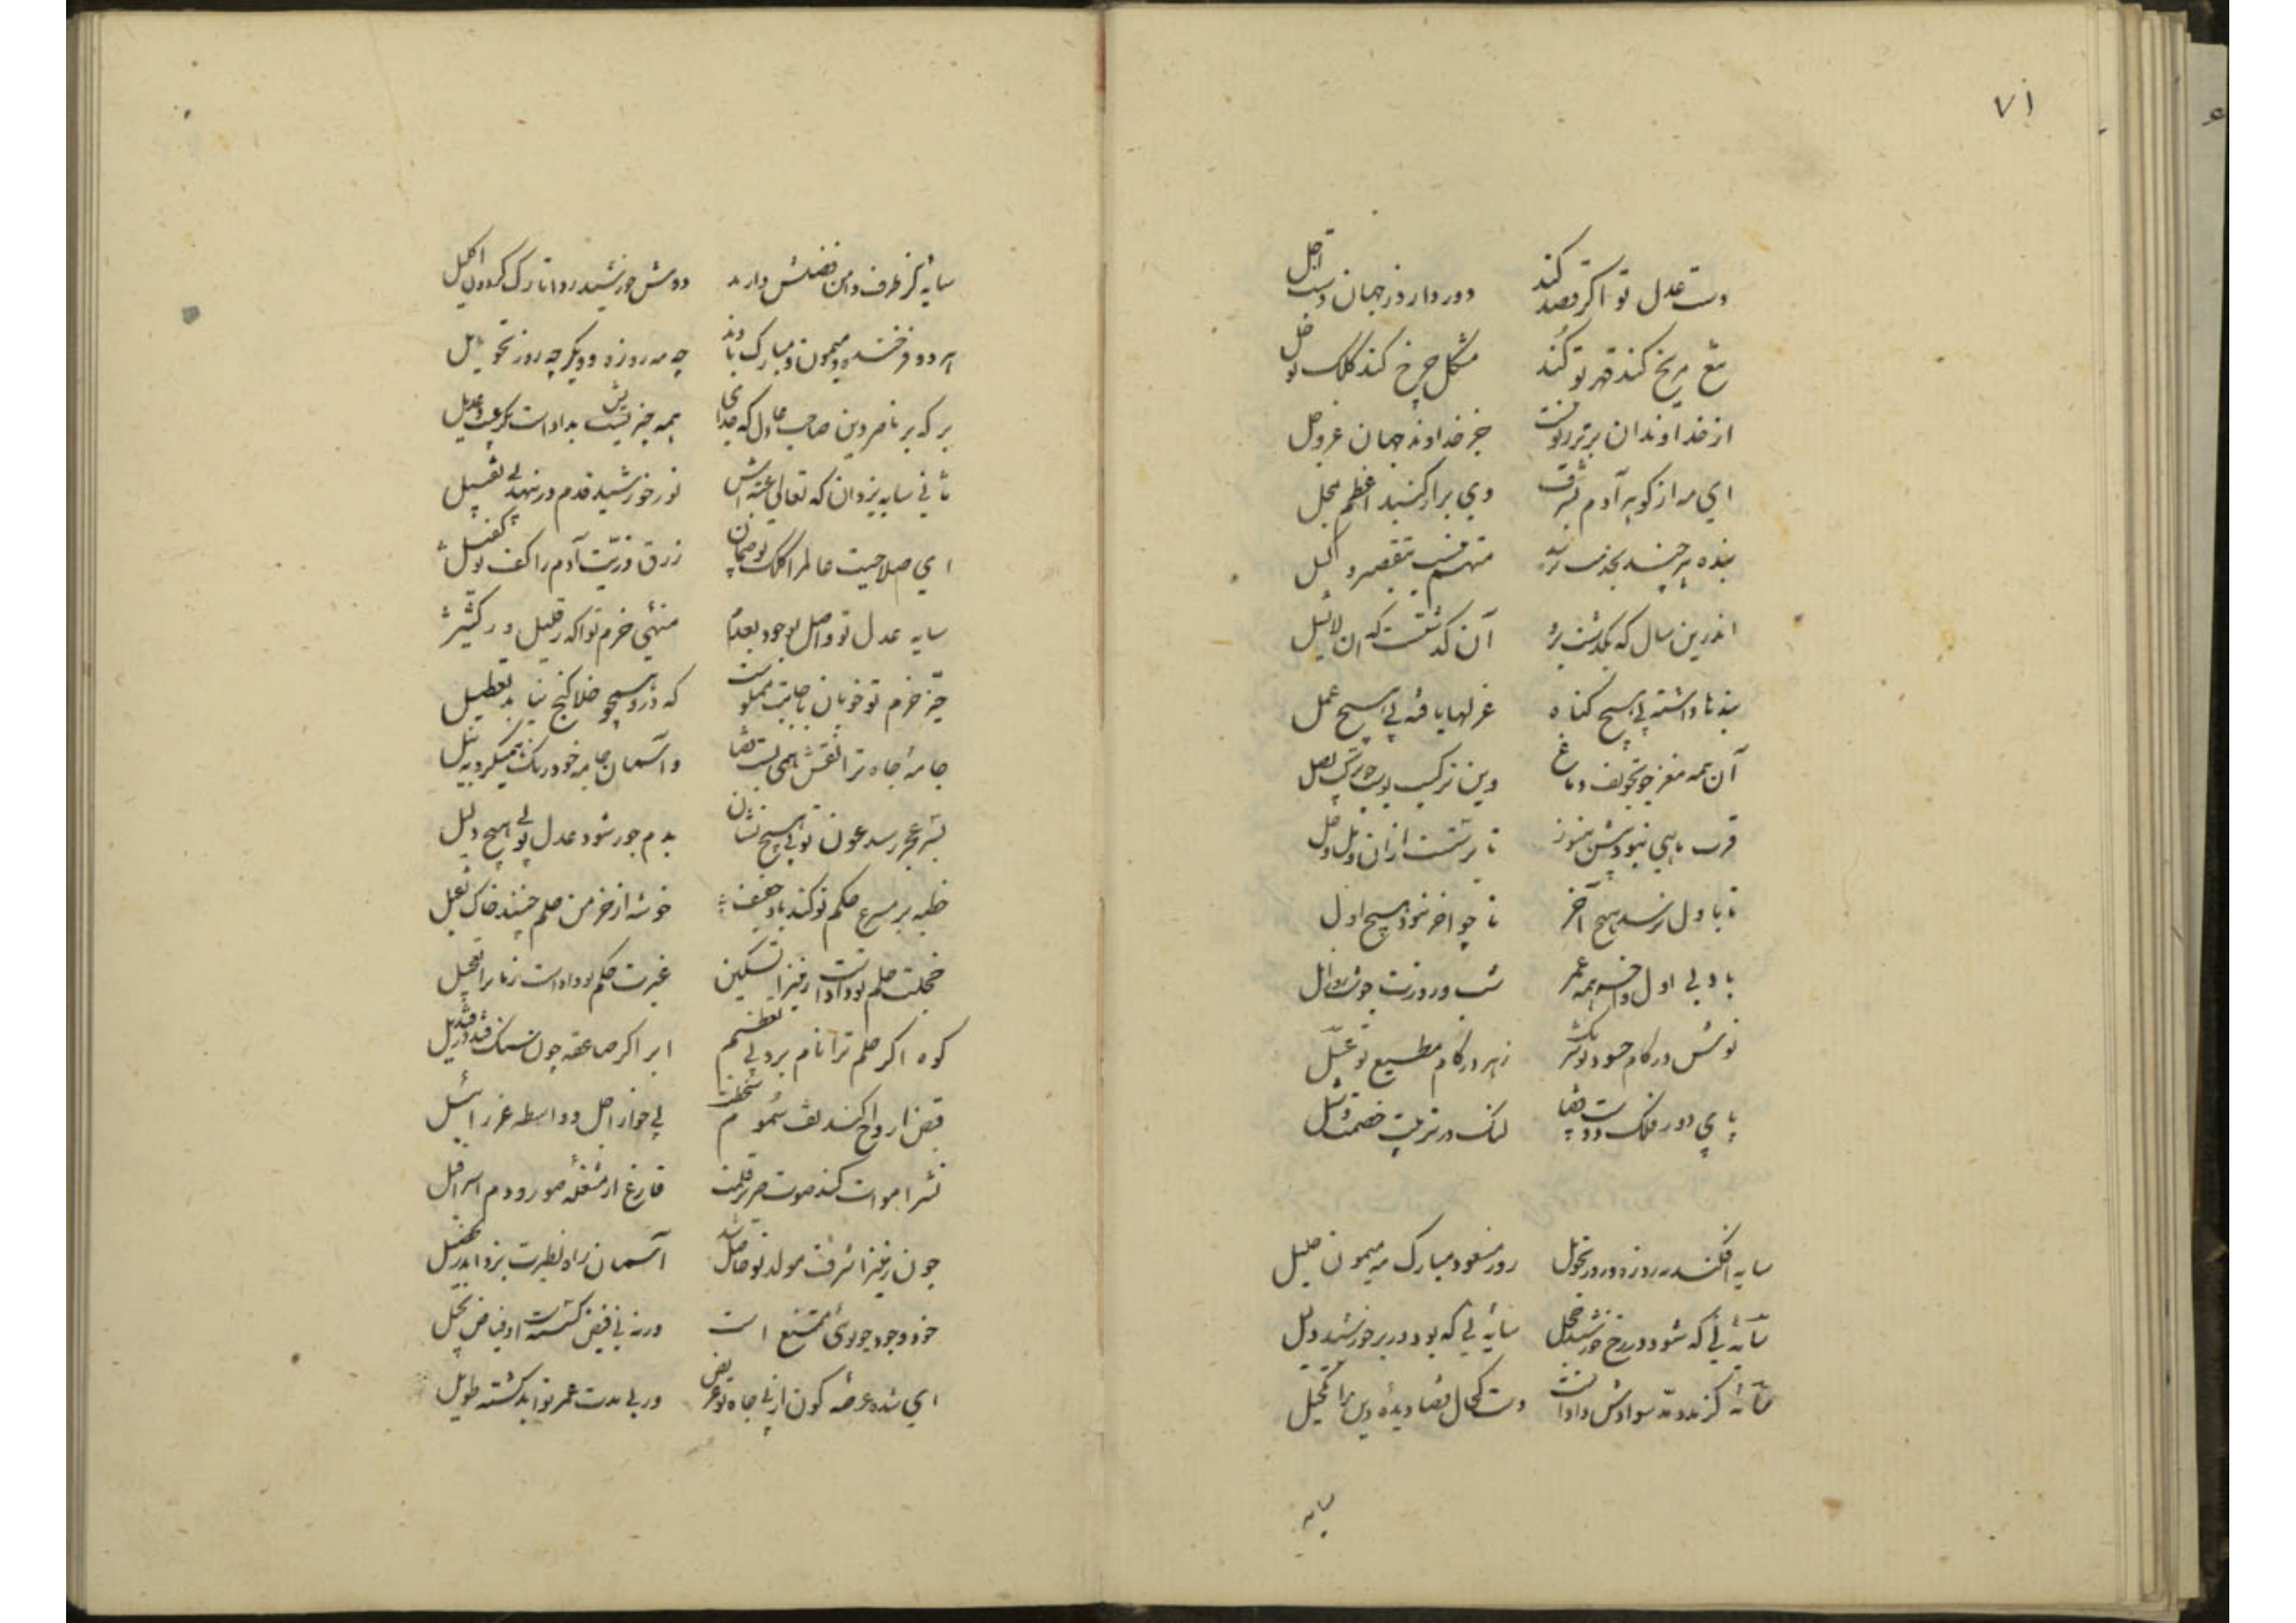 ۷۱
دست عدل تو اگر قصد کند دور دارد ز جهان دست اجل
تیغ مریخ کند قهر تو کند مشکل چرخ کند کلک تو حل
از خداوندان برتر ز تو نیست جز خداوند جهان عز و جل
ای مه از گوهر آدم بشرف وی برادر کنبد اعظم بمحل
بنده هر چند بخدمت نرسد متهم نیست بتقصیر و کسل
اندرین سال که بگذشت برو آن گذشتست که آن لاتسل
بندها داشته بی هیچ گناه عزلها یافته بی هیچ عمل
آن همه مغز چو تجویف دماغ وین ترکیب چو ترکیب بصل
قرب ماهی نبودش هنوز
تا باول نرسد هیچ آخر تا چو آخر نبود هیچ اول
باد بی اول و آخر همه عمر شب و روزت چو شب و روز ازل
نوش در کام حسود تو شرنگ زهر در کام مطیع تو عسل
پای دور فلک و دست قضا لنگ در تربیت خصمت و شل
سایه افکند مه روزه و روز تحویل روز مسعود مبارک مه میمون جلیل
سایه‌ئی که شود در رخ خورشید خجل سایه‌ئی که بود در بر خورشید دلیل
سایهٔ کز مدد مد سوادش دادست دست کحال قضا دیدهٔ دین را تکحیل
سایه
سایه کز طرف دامن فضلش دارند دوش خورشید ردا تارک گردون اکلیل
هر دو فرخنده و میمون و مبارک بادند چه مه روزه و دیگر چه روز تحویل
بر که بر ناصر دین صاحب عادل که خدای همه چیزیش بدادست مگر عیب و عدیل
ثانی سایه یزدان که تعالی عنه اش نور خورشید قدم در ننهد بی تفصیل
ای صلاحیت عالم را کلک تو ضمان رزق ذریت آدم را کف تو کفیل
سایه عدل تو واصل بوجود و بعدم منهی حزم تو آگه ز قلیل و ز کثیر
حیز حزم تو خوبان باجابت مملوست که درو هیچ خلا گنج نیابد تعطیل
جامهٔ جاه ترا نقش همی بست قضا و آسمان جامه خود رنگ همیکرد به نیل
بسر عجز رسد عون تو بی هیچ نشان بدم جور شود عدل تو بی هیچ دلیل
خطبه بر مسرع حکم تو کند باد خفیف خوشه از خرمن حلم چیند خاک ثقیل
خجلت حلم تو دادست زمین را تسکین غیرت حکم تو دادست زمان را تعجیل
کوه اگر حلم ترا نام برد بی تعظیم ابر اگر صاعقه چون سنگ فتد در قندیل
قبض ارواح کند تف سموم سخطت بی جواز اجل و واسطه عزرائیل
نشر اموات کند صوت صریر قلمت فارغ از مشغله صور و دم اسرافیل
چون زمین را شرف مولد تو حاصل شد آسمان راه نظیرت بزد اندر تحصیل
خود وجود چو توئی ممتنع است ورنه نی فیض گسسته است و نه فیاض بخیل
ای شده عرضهٔ کون از پی جاه تو عریض وز پی مدت عمر تو ابد گشته طویل